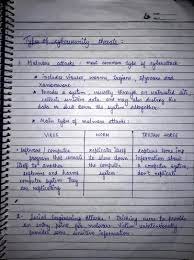 Types of cybersecurity threats :
1. Malware attacks - most common type of cyberattack
• Includes viruses, worms, trojans, spyware and
ransomware
• Invade a system, usually through an untrusted
collect sensitive data and may also destroy the
data or shut down the system altogether.
• Main types of malware attacks :
VIRUS WORM TROJAN HORSE
• software / computer program that connects itself to another software and harms computer system. They are replicating
replicate itself to slow down the computer system
capture some imp information about a computer system
2. Social Engineering attacks : Tricking users to provide
an entry point for malware. Victim unintentionally
provide some sensitive information